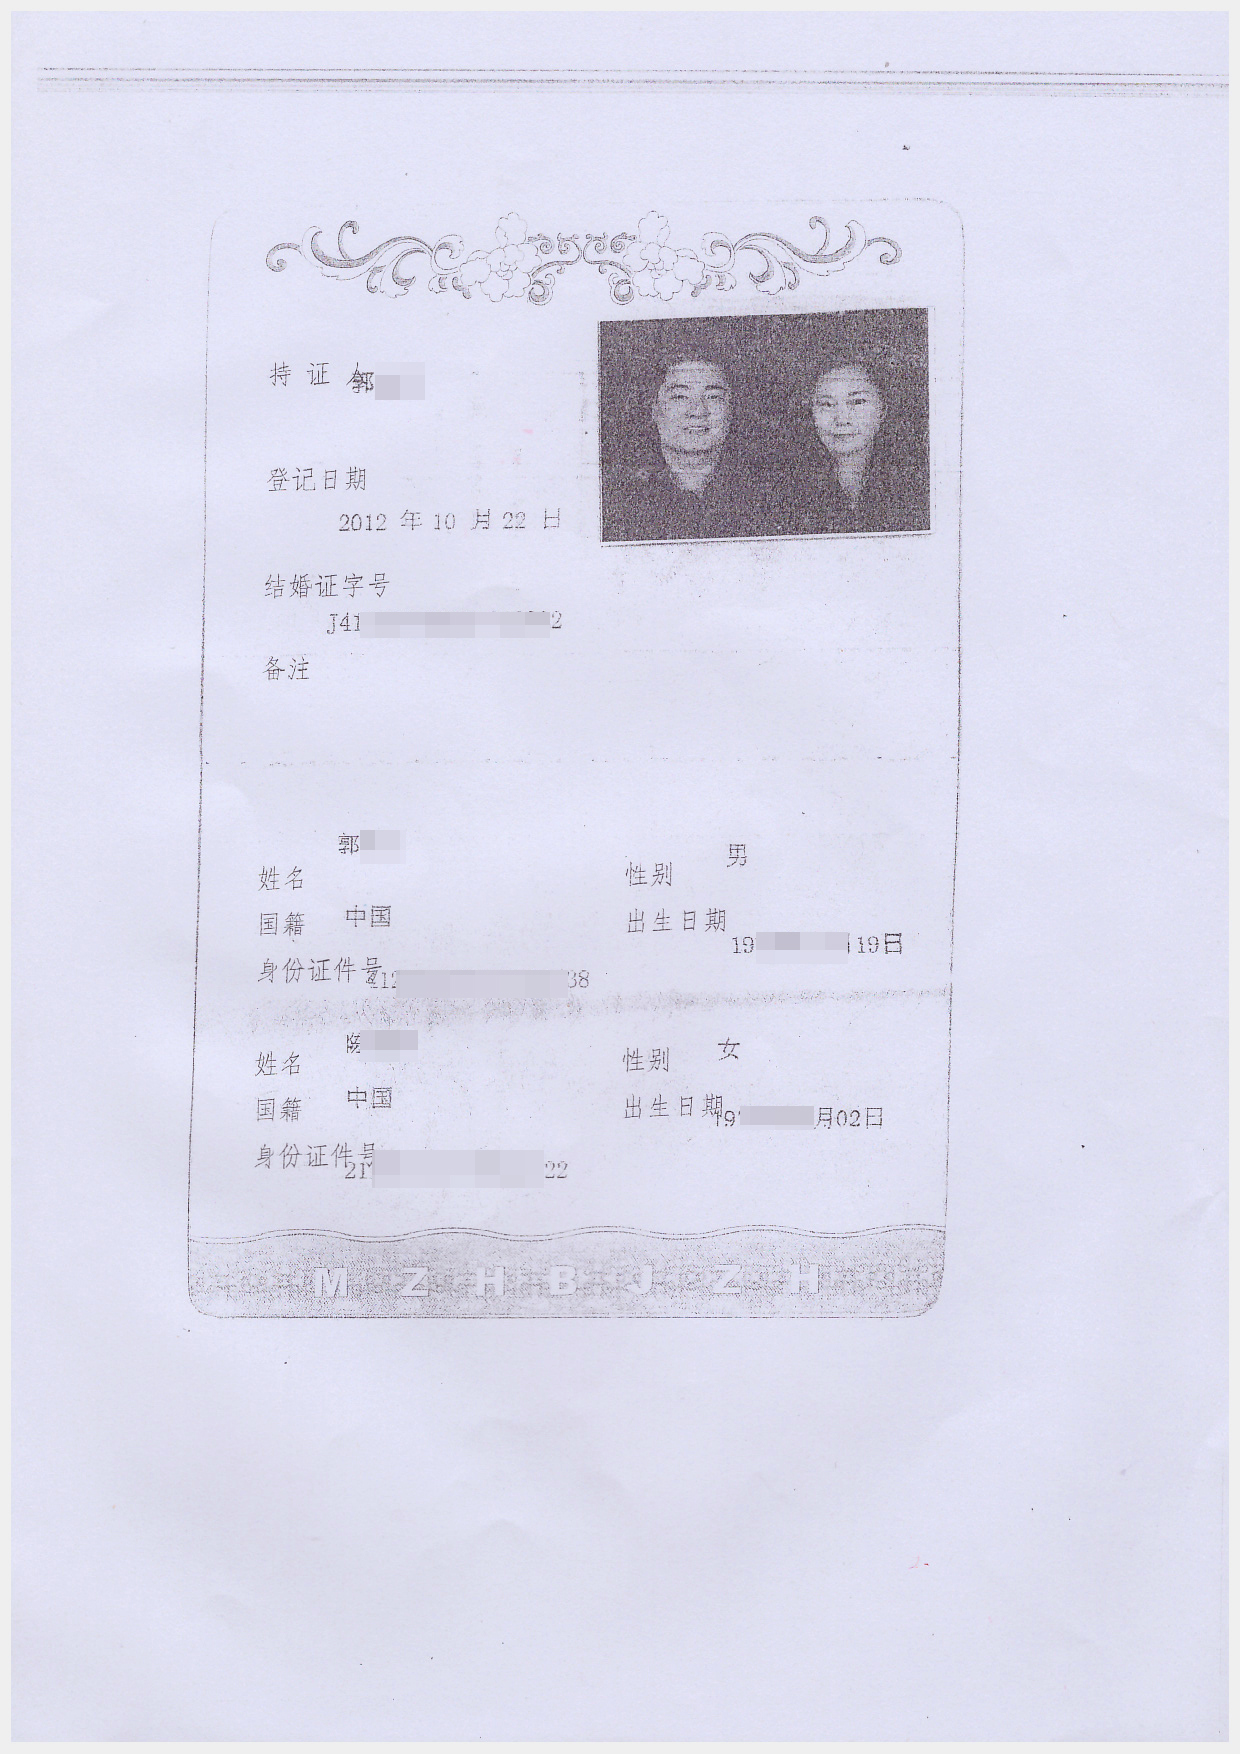 持证人 郭
登记日期
2012 年 10 月 22 日
结婚证字号
J41 2
备注
郭
姓名
性别 男
国籍 中国
出生日期 19 19日
身份证件号 412 38
姓名
性别 女
国籍 中国
出生日期 19 月02日
身份证件号 21 22
M Z H B J Z H